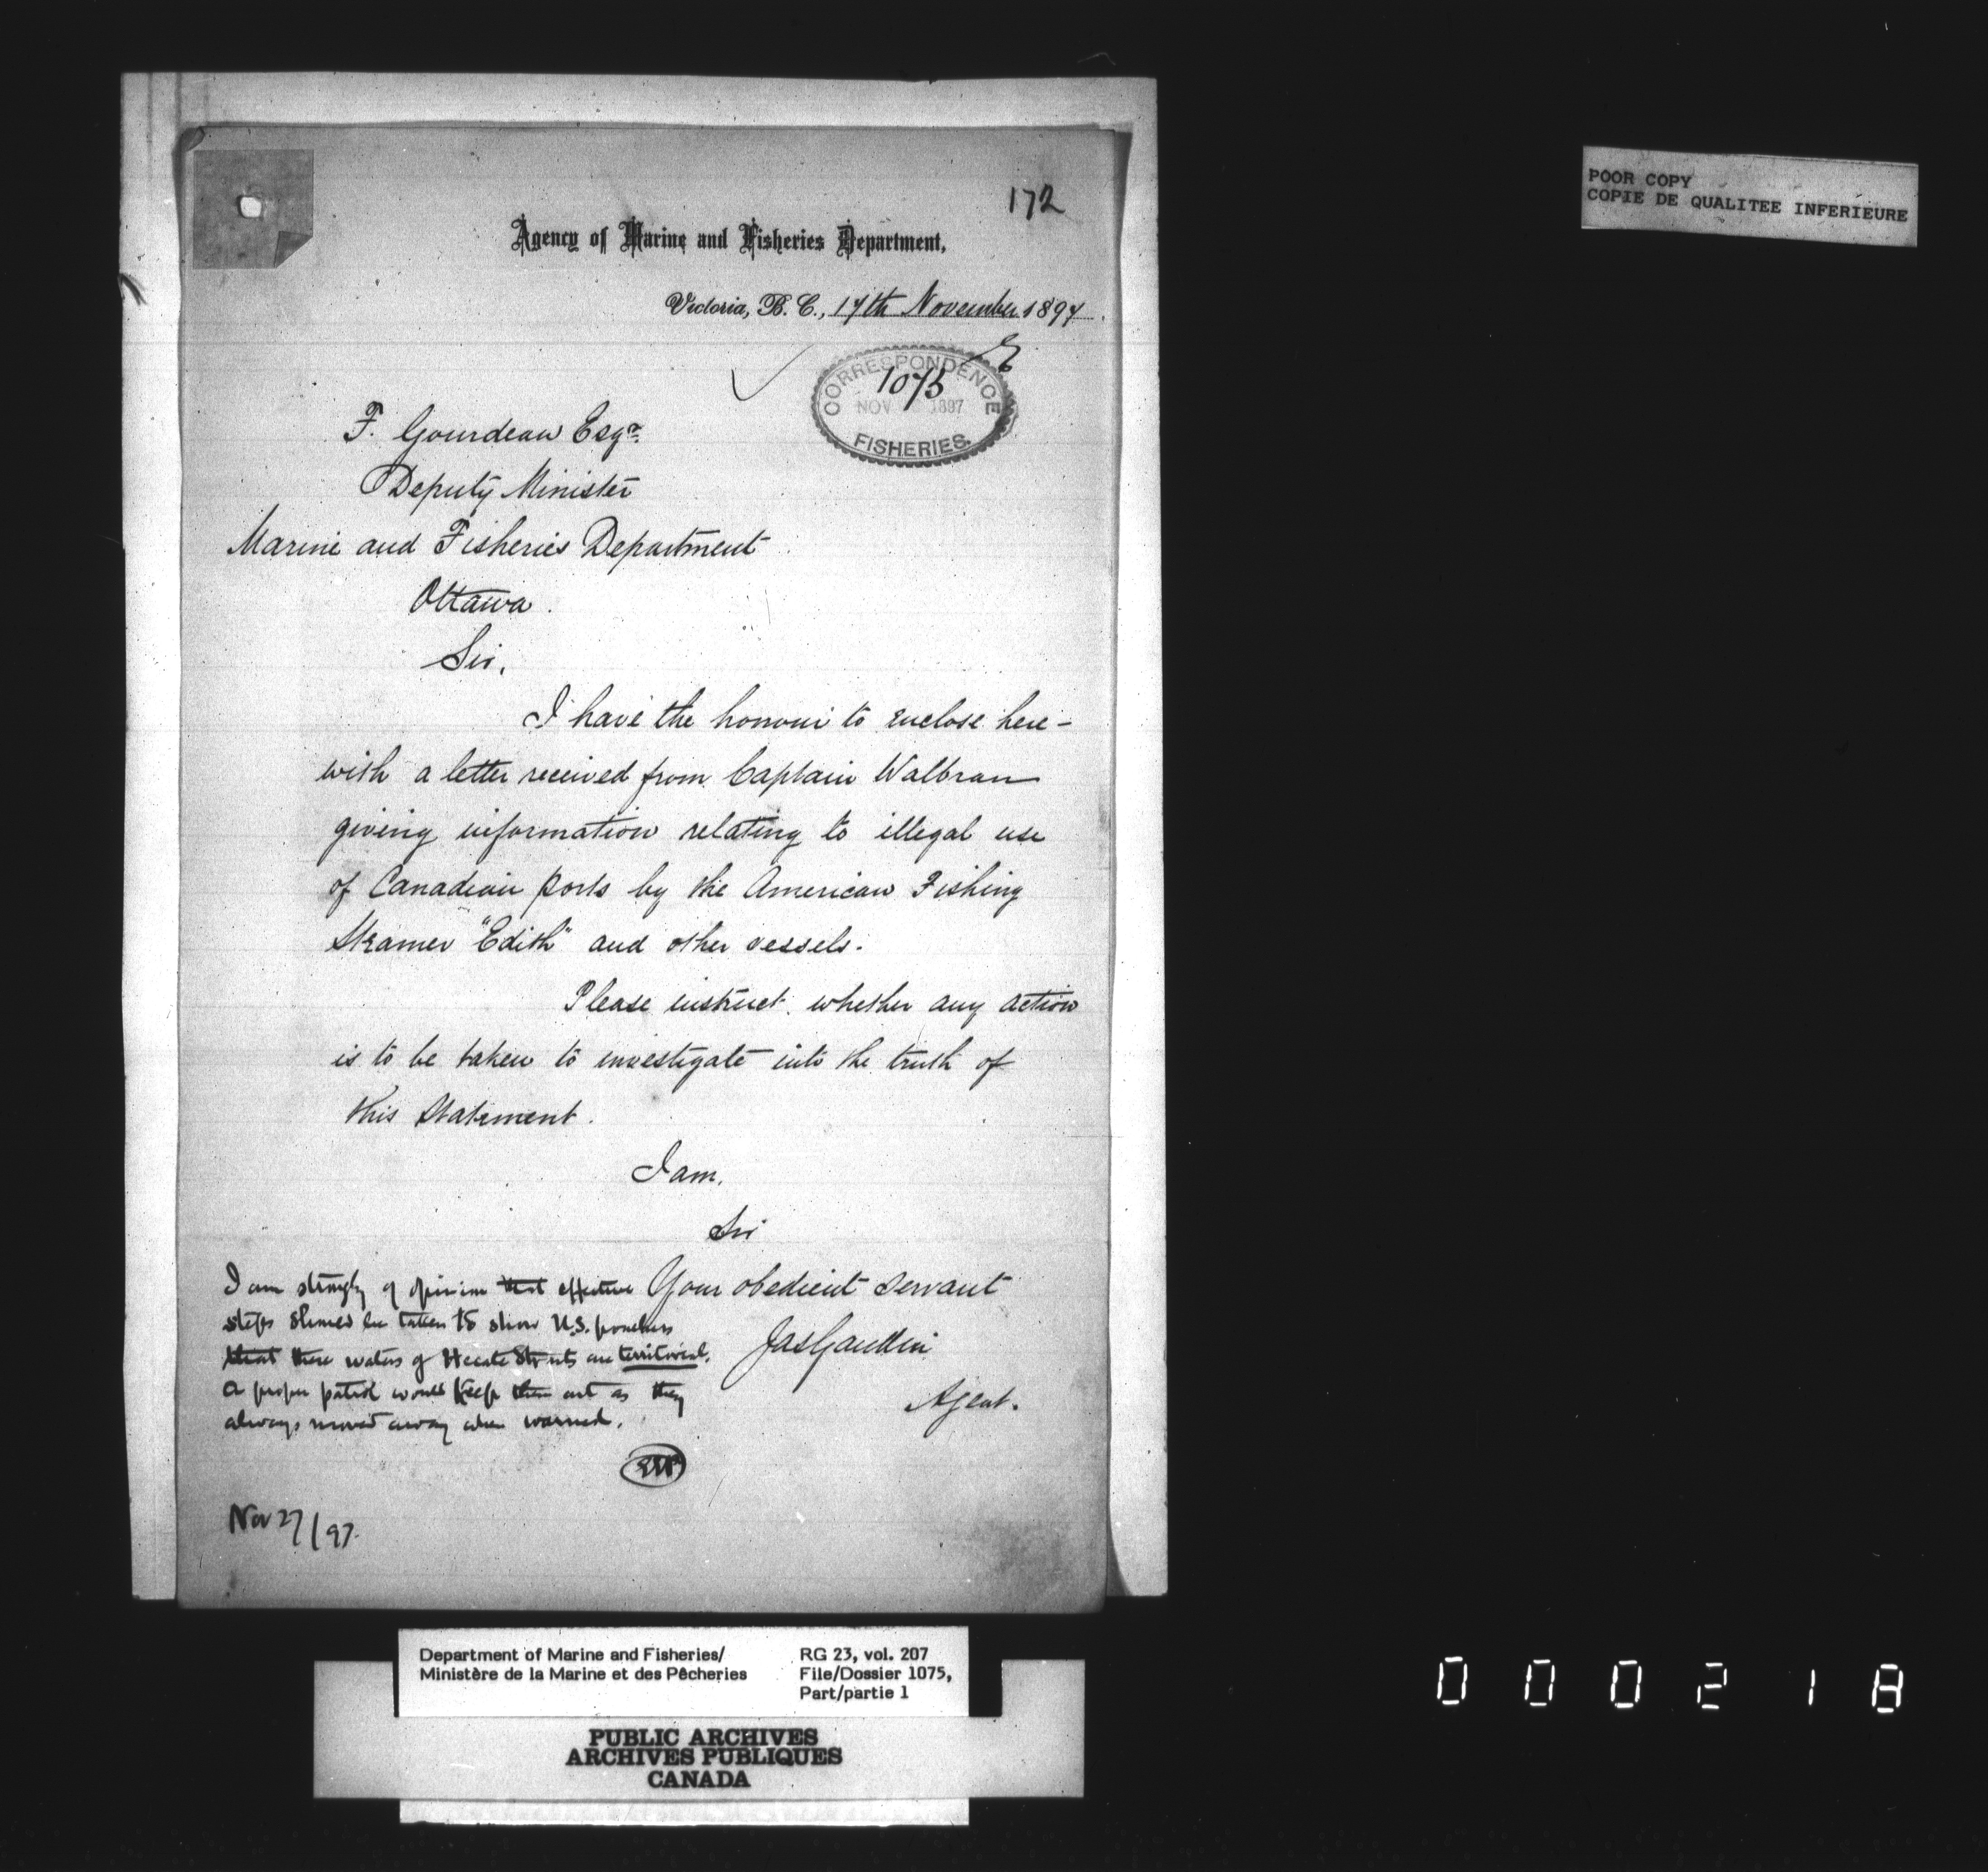 172
Agency of Marine and Fisheries Department,
Victoria, B. C., 17th November 1897.
CORRESPONDENCE
1075
NOV 1897
FISHERIES.
F. Gourdeau Esqr.
Deputy Minister
Marine and Fisheries Department
Ottawa.
Sir,
I have the honour to enclose here-
with a letter received from Captain Walbran
giving information relating to illegal use
of Canadian ports by the American Fishing
Steamer "Edith" and other vessels.
Please instruct whether any action
is to be taken to investigate into the truth of
this Statement.
I am,
Sir
Your obedient servant
Jas Gaudin
Agent.
I am strongly of opinion that effective
steps should be taken to show U.S. poachers
that these waters of Hecate Straits are territorial.
A proper patrol would keep them out as they
always moved away when warned.
Nov 27/97.
POOR COPY
COPIE DE QUALITEE INFERIEURE
Department of Marine and Fisheries/
Ministère de la Marine et des Pêcheries
RG 23, vol. 207
File/Dossier 1075,
Part/partie 1
PUBLIC ARCHIVES
ARCHIVES PUBLIQUES
CANADA
000218